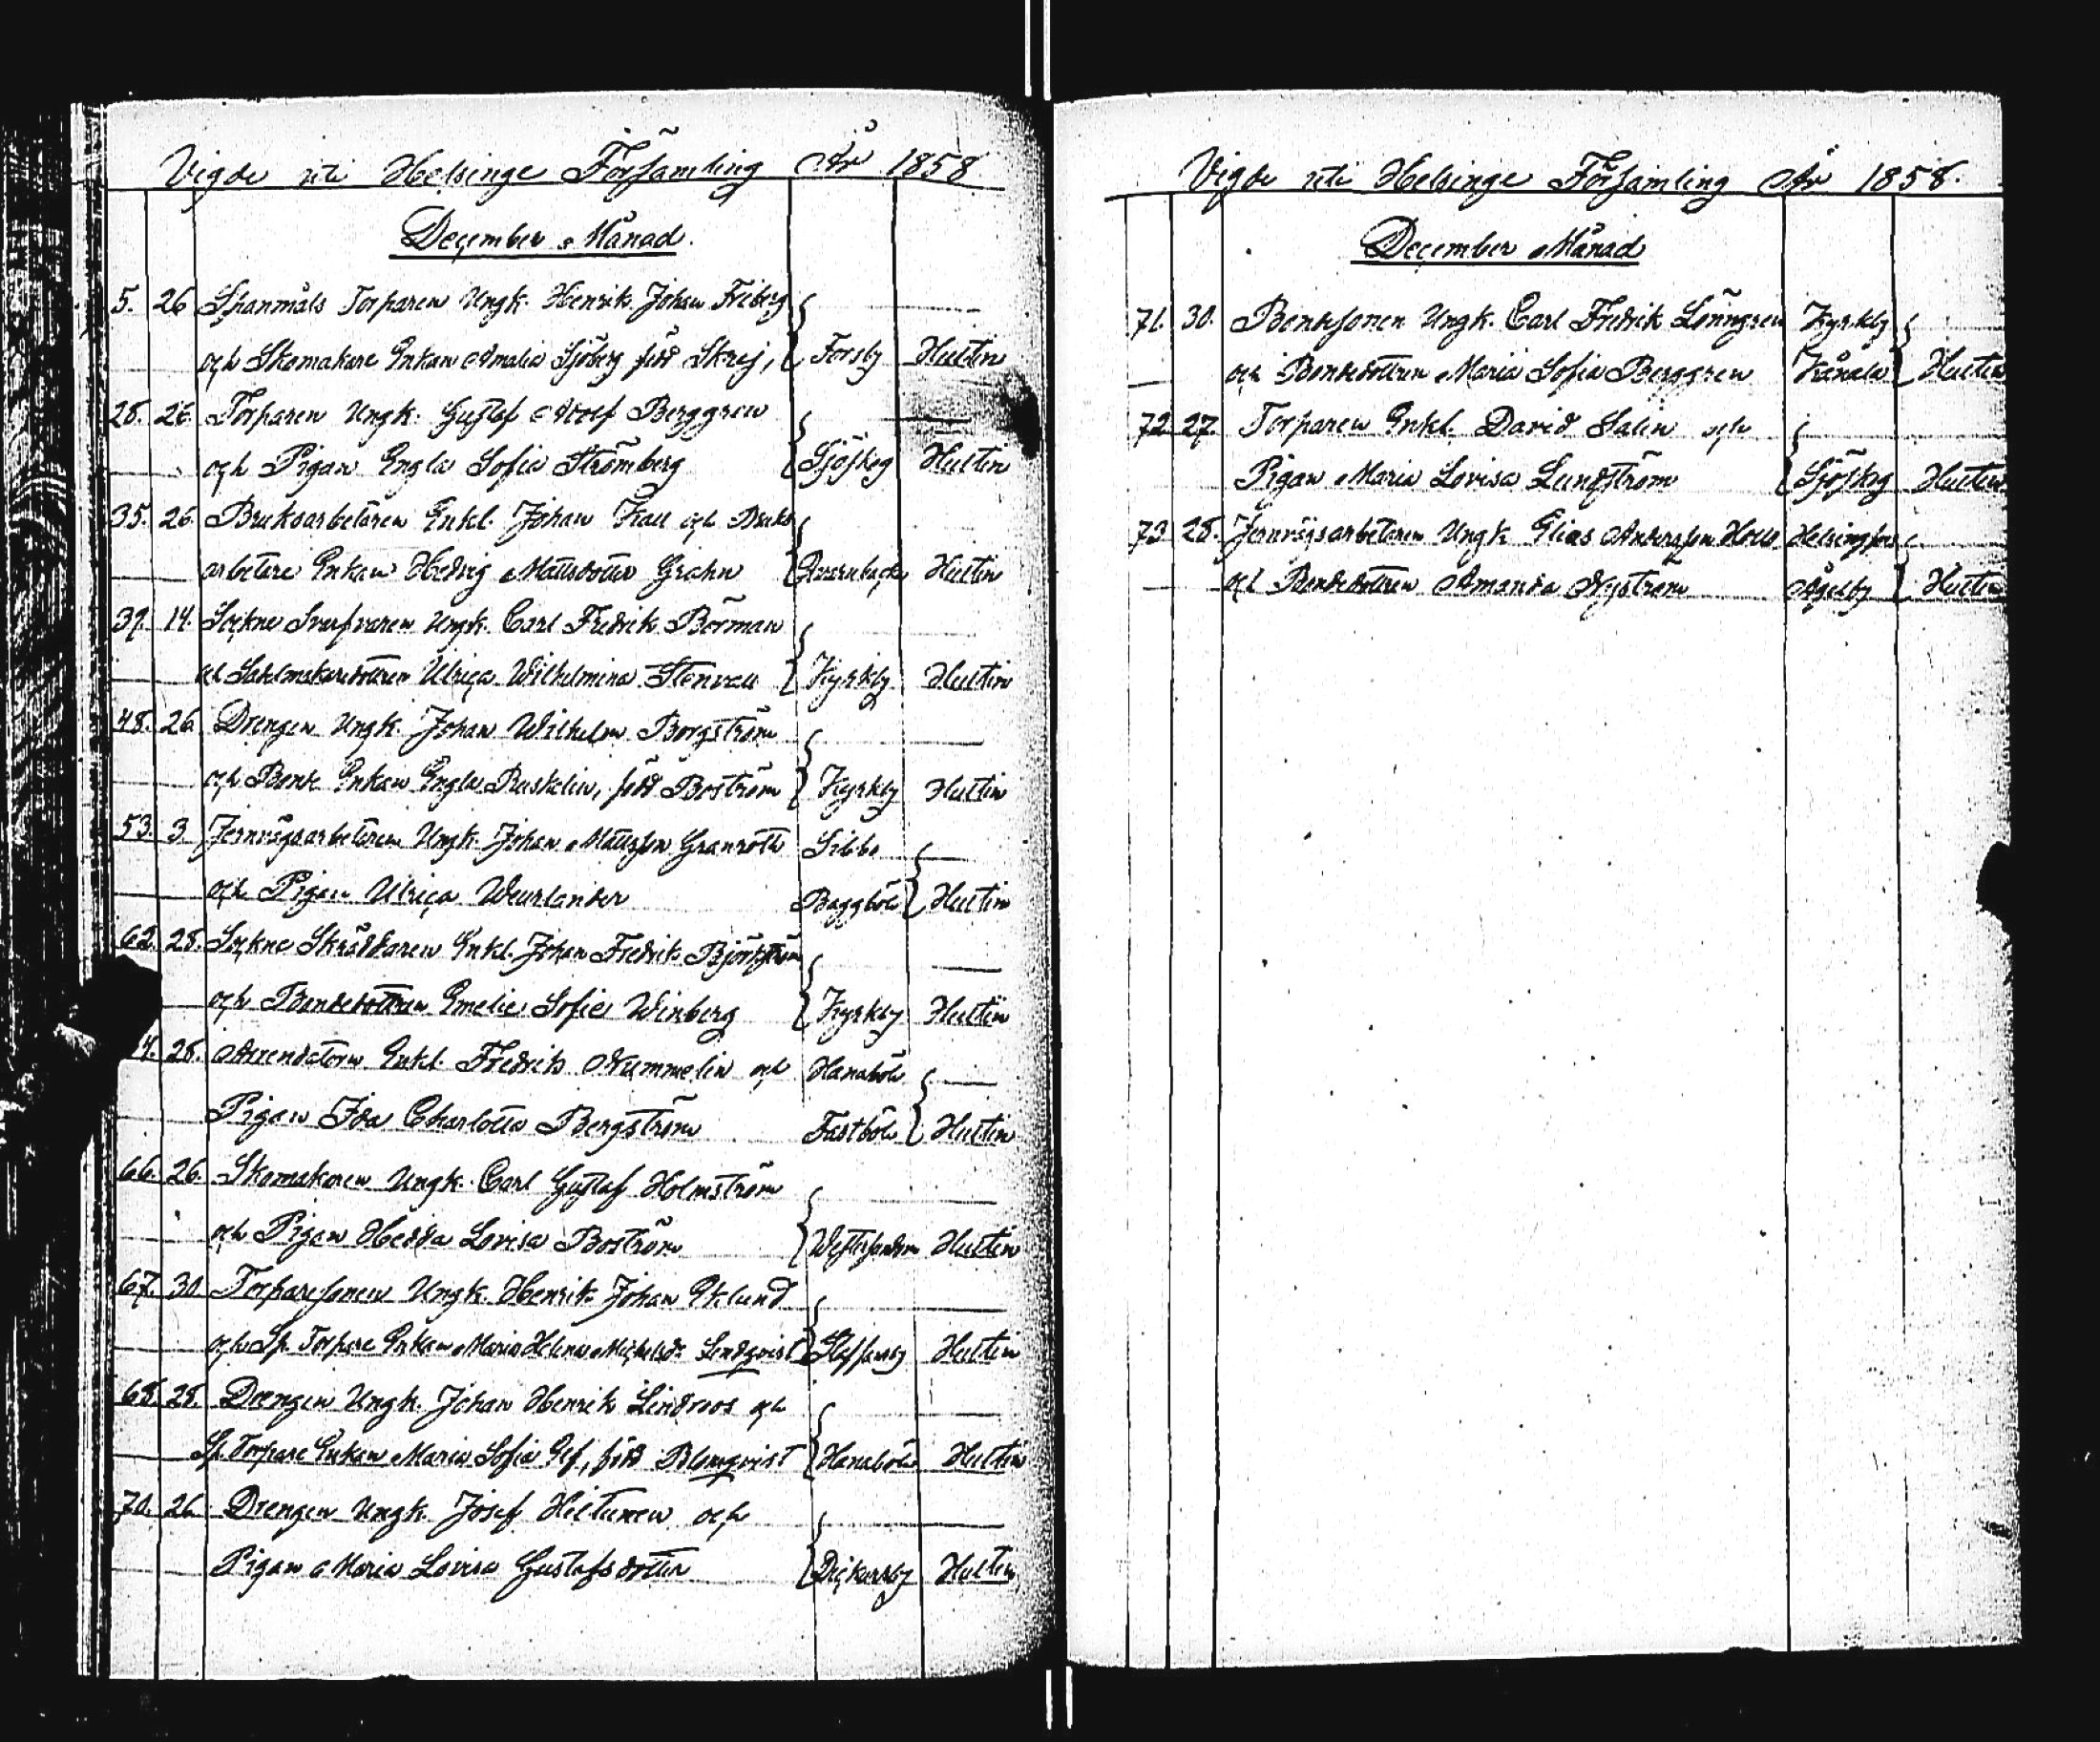 Vigde uti Helsinge Församling År 1858
December Månad.
5. 26 Spanmåls Torparen Ungk. Henrik Johan Friberg
och Skomakare Enkan Amalia Sjöberg född Skrej, Forsby Hultin
28. 26. Torparen Ungk. Gustaf Adolf Berggren
och Pigan Engla Sofia Strömberg Sjöskog Hultin
35. 26. Bruksarbetaren Enkl. Johan Kau och Bruks
arbetare Enkan Hedvig Mattsdotter Grahn Qvarnbacka Hultin
39. 14. Sockne Svarfvaren Ungk. Carl Fredrik Börman
och Sadelmakaredottren Ulrica Wilhelmina Stenvall Kyrkby Hultin
48. 26. Drengen Ungk. Johan Wilhelm Borgström
och Bonde Enkan Engla Ruskelin, född Boström Kyrkby Hultin
53. 3. Jernvägsarbetaren Ungk. Johan Mattsson Granroth Sibbo
och Pigan Ulrica Weurlander Baggböle Hultin
62. 28. Sockne Skräddaren Enkl. Johan Fredrik Björkström
och Bondedottren Emelie Sofie Winberg Kyrkby Hultin
4. 28. Arrendatorn Enkl. Fredrik Nummelin och Hanaböle
Pigan Ida Charlotta Bergström Fastböle Hultin
66. 26. Skomakaren Ungk. Carl Gustaf Holmström
och Pigan Hedda Lovisa Boström Westersundom Hultin
67. 30 Torparesonen Ungk. Henrik Johan Eklund
och Sp. Torpare Enkan Maria Helena Michelsdr Lindqvist Staffansby Hultin
68. 28. Drengen Ungk. Johan Henrik Lindroos och
Sp. Torpare Enkan Maria Sofia Elf, född Blomqvist Hanaböle Hultin
70. 26 Drengen Ungk. Josef Hiltunen och
Pigan Maria Lovisa Gustafsdotter Dickursby Hultin
Vigde uti Helsinge Församling År 1858.
December Månad
71. 30. Bondesonen Ungk. Carl Fredrik Lönngren Kyrkby
och Bondedottren Maria Sofia Berggren Kånala Hultin
72 27. Torparen Enkl. David Salin och
Pigan Maria Lovisa Lundström Sjöskog Hultin
73 28. Jernvägsarbetaren Ungk. Elias Andersson Helsingfors
och Bondedottren Amanda Nyström Ågelby Hultin